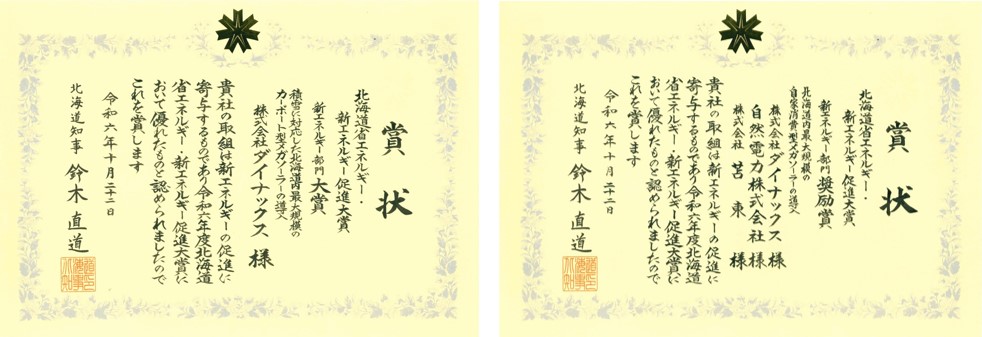 賞状
北海道省エネルギー・
新エネルギー促進大賞
新エネルギー部門 大賞
積雪に対応した北海道内最大規模の
カーポート型メガソーラーの導入
株式会社ダイナックス 様
貴社の取組は新エネルギーの促進に
寄与するものであり令和六年度北海道
省エネルギー・新エネルギー促進大賞に
おいて優れたものと認められましたので
これを賞します
令和六年十月二十二日
北海道知事 鈴木直道
賞状
北海道省エネルギー・
新エネルギー促進大賞
新エネルギー部門 奨励賞
北海道内最大規模の
自家消費型メガソーラーの導入
株式会社ダイナックス 様
自然電力株式会社 様
株式会社 東 様
貴社の取組は新エネルギーの促進に
寄与するものであり令和六年度北海道
省エネルギー・新エネルギー促進大賞に
おいて優れたものと認められましたので
これを賞します
令和六年十月二十二日
北海道知事 鈴木直道